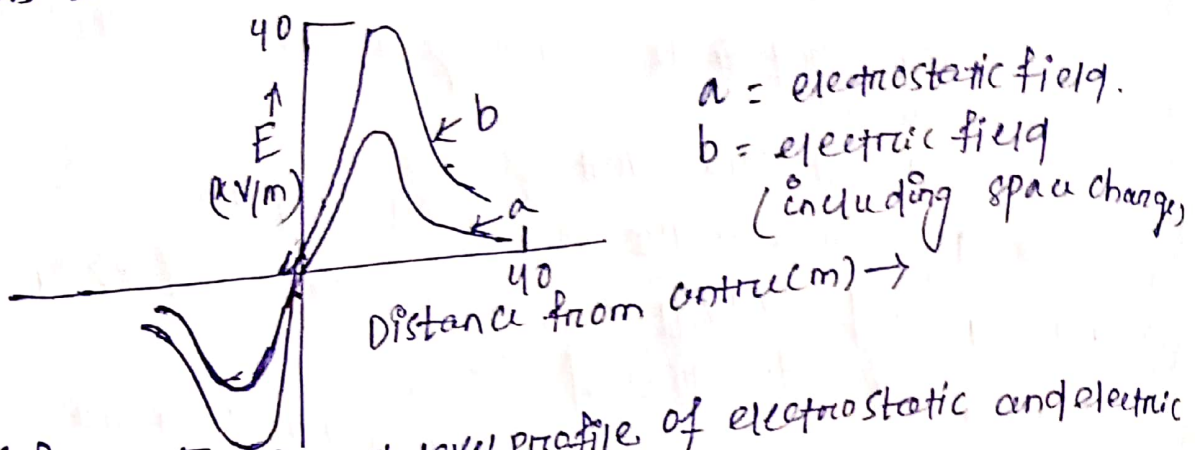 40
↑
E
(kV/m)
b
a
40
Distance from centre(m) →
a = electrostatic field.
b = electric field
(including space charge)
profile of electrostatic and electric